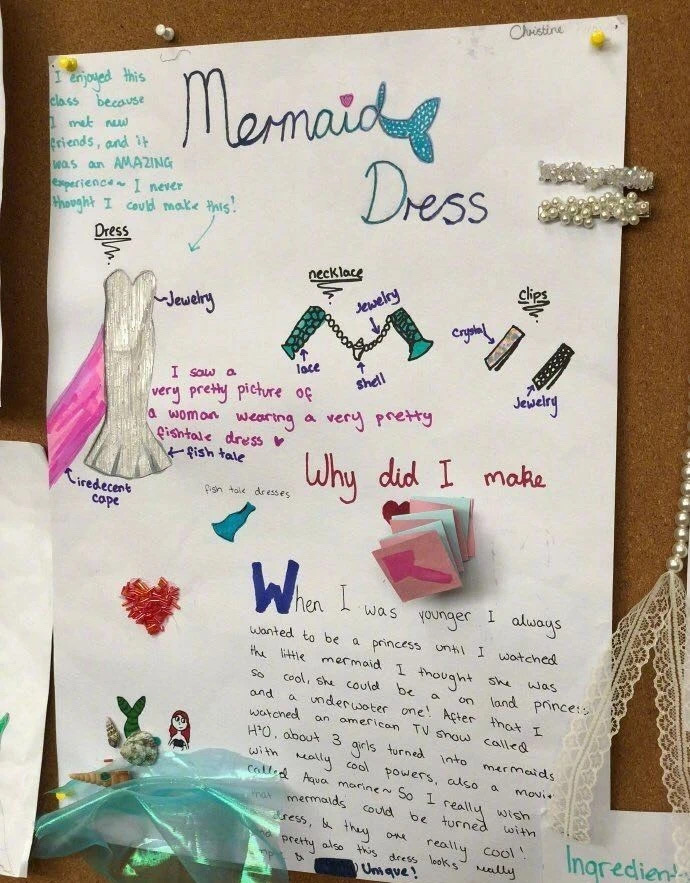 Christine
I enjoyed this
class because
I met new
friends, and it
was an AMAZING
experience~ I never
thought I could make this!
Mermaid
Dress
Dress
Jewelry
necklace
Jewelry
lace
shell
clips
crystal
Jewelry
I saw a
very pretty picture of
a woman wearing a very pretty
fishtale dress
fish tale
iredecent
cape
fish tale dresses
Why did I make
When I was younger I always
wanted to be a princess until I watched
the little mermaid I thought she was
so cool, she could be a on land princess
and a underwater one! After that I
watched an american TV show called
H²O, about 3 girls turned into mermaids
with really cool powers, also a movie
called Aqua marine~ So I really wish
that mermaids could be turned with
dress, & they are really cool!
pretty also this dress looks really
& Unique!
Ingredien